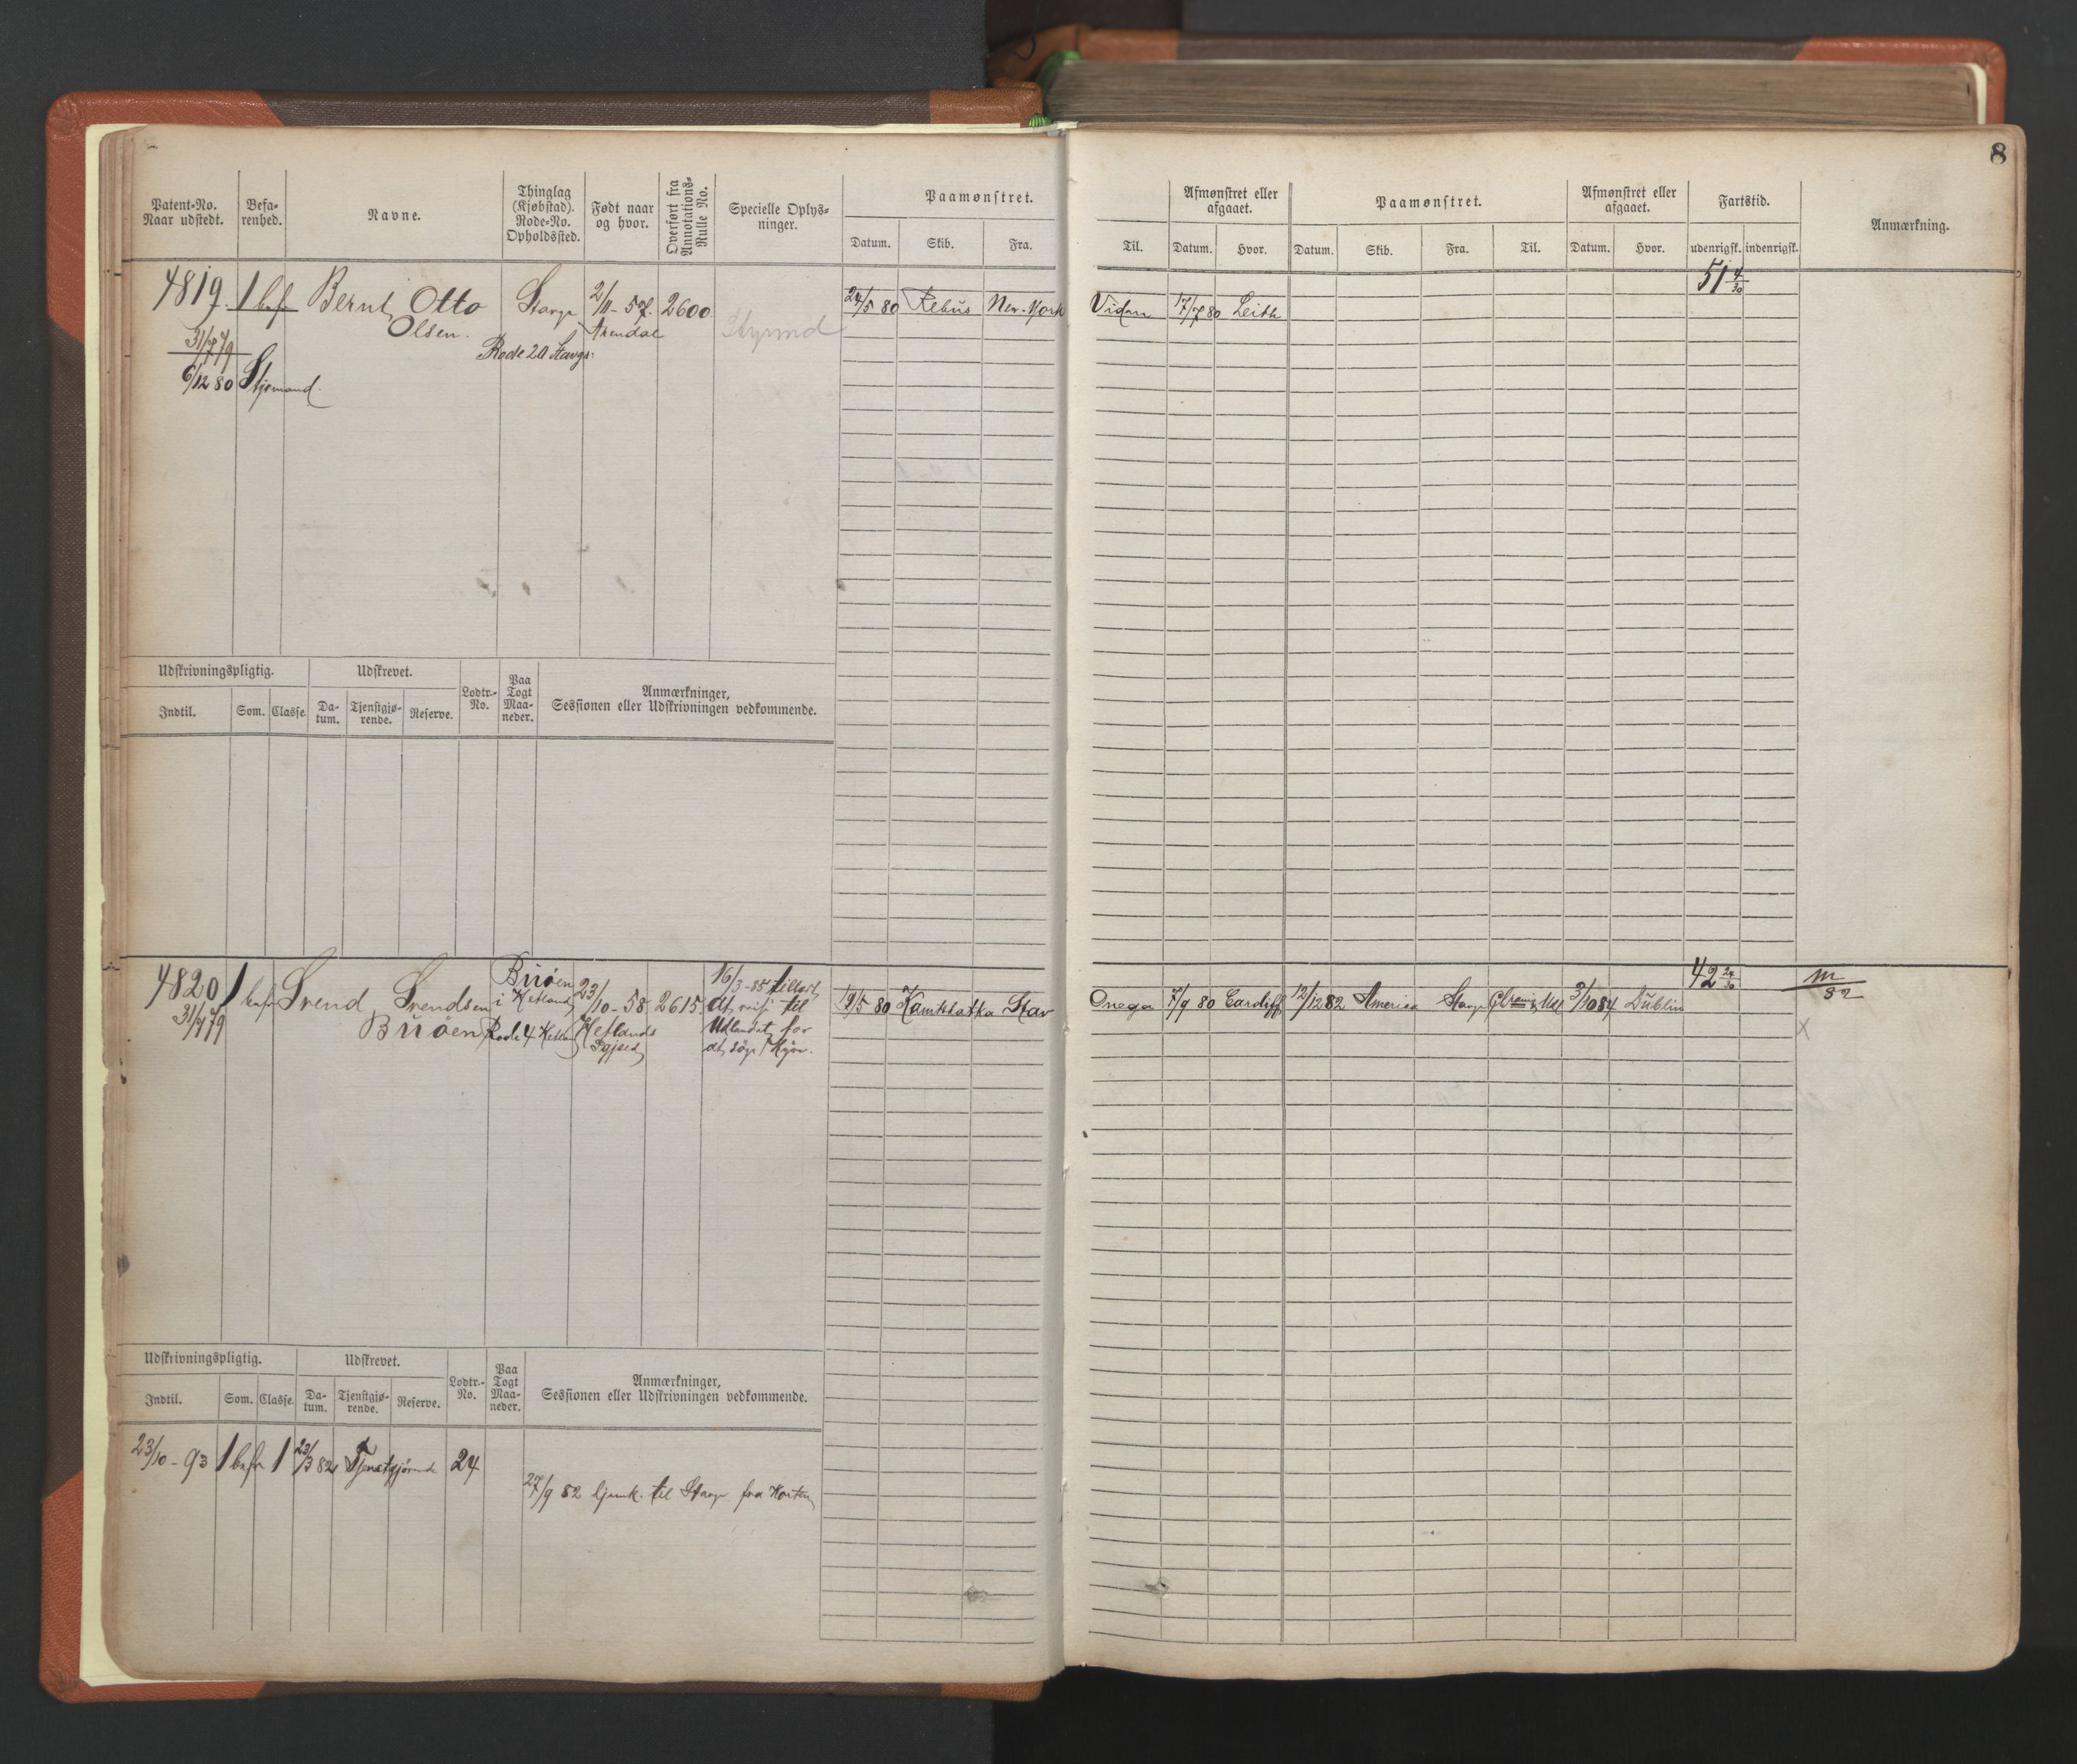 8
Patent-No. Naar udstedt. Befa-renhed. Navne. Thinglag (Kjøbstad). Rode-No. Opholdssted. Født naar og hvor. Overført fra Annotations-Rulle No. Specielle Oplys-ninger. Paamønstret.
Datum. Skib. Fra.
Afmønstret eller afgaaet. Paamønstret. Afmønstret eller afgaaet. Fartstid. Anmærkning.
Til. Datum. Hvor. Datum. Skib. Fra. Til. Datum. Hvor. udenrigsk. indenrigsk.
4819. 1 bef Bernt Otto Stavgr 2/11-57. 2600. 24/5 80 Rebus New-York Vidan 17/7 80 Leith 51 4/30
Olsen. Arendal Styrmd
31/7 79 Rode 20 Stavgr:
6/12 80 Stjrmand.
Udskrivningspligtig. Udskrevet. Lodtr.-No. Paa Togt Maa-neder. Anmærkninger, Sessionen eller Udskrivningen vedkommende.
Indtil. Som. Classe. Da-tum. Tjenstgjø-rende. Reserve.
4820 1 befr Svend Svendsen Buøen i Hetland 23/10-58. 2615. 16/3-85 tilladt 19/5 80 Kamtskatka Stav Onega 7/9 80 Cardiff 12/12 82 America Stavgr 3/10 84 Dublin 42 24/30
31/7 79 Buøen Rode 4 Hetland Hetlands at reise til
Udlandet for
at søge Hyre.
X
Udskrivningspligtig. Udskrevet. Lodtr.-No. Paa Togt Maa-neder. Anmærkninger, Sessionen eller Udskrivningen vedkommende.
Indtil. Som. Classe. Da-tum. Tjenstgjø-rende. Reserve.
23/10-93 1 befr 1 23/3 82 Tjenstgjørende 24
27/9 82 hjemk. til Stavgr fra Horten